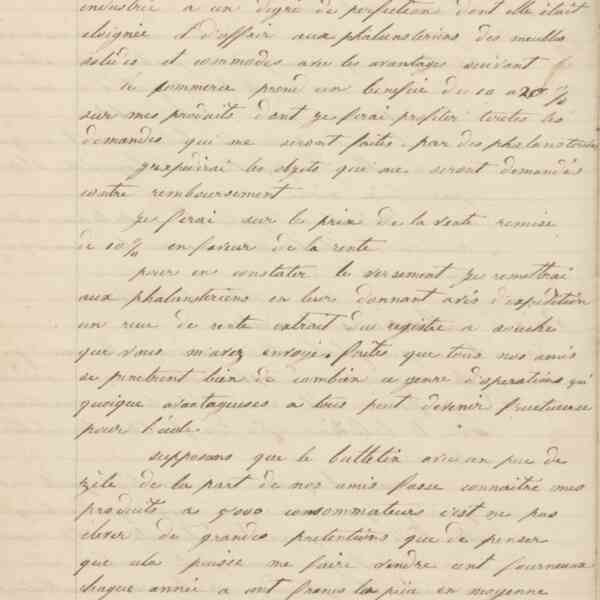 industrie a un degré de perfection dont elle était
eloignée et d'offrir aux phalansteriens des meubles
solides et commodes avec les avantages suivant
Le commerce prend un benefice de 10 a 20 %
sur mes produits dont je ferai profiter toutes les
demandes qui me seront faites par des phalansteriens
J'expedirai les objets qui me seront demandés
contre remboursement
Je ferai sur le prix de la vente remise
de 10 % en faveur de la rente
pour en constater le versement je remettrai
aux phalansteriens en leur donnant avis d'expedition
un recu de rente extrait du registre a souche
que vous m'avez envoyé. faites que tous nos amis
se penetrent bien de combien ce genre d'operations qui
quoique avantageuses a tous peut devenir fructueuse
pour l'école.
supposons que le bulletin avec un peu de
zèle de la part de nos amis fasse connaitre mes
produits a 5000 consommateurs c'est ne pas
elever de grandes pretentions que de penser
que cela puisse me faire vendre cent fourneaux
chaque année a cent francs la pièce en moyenne